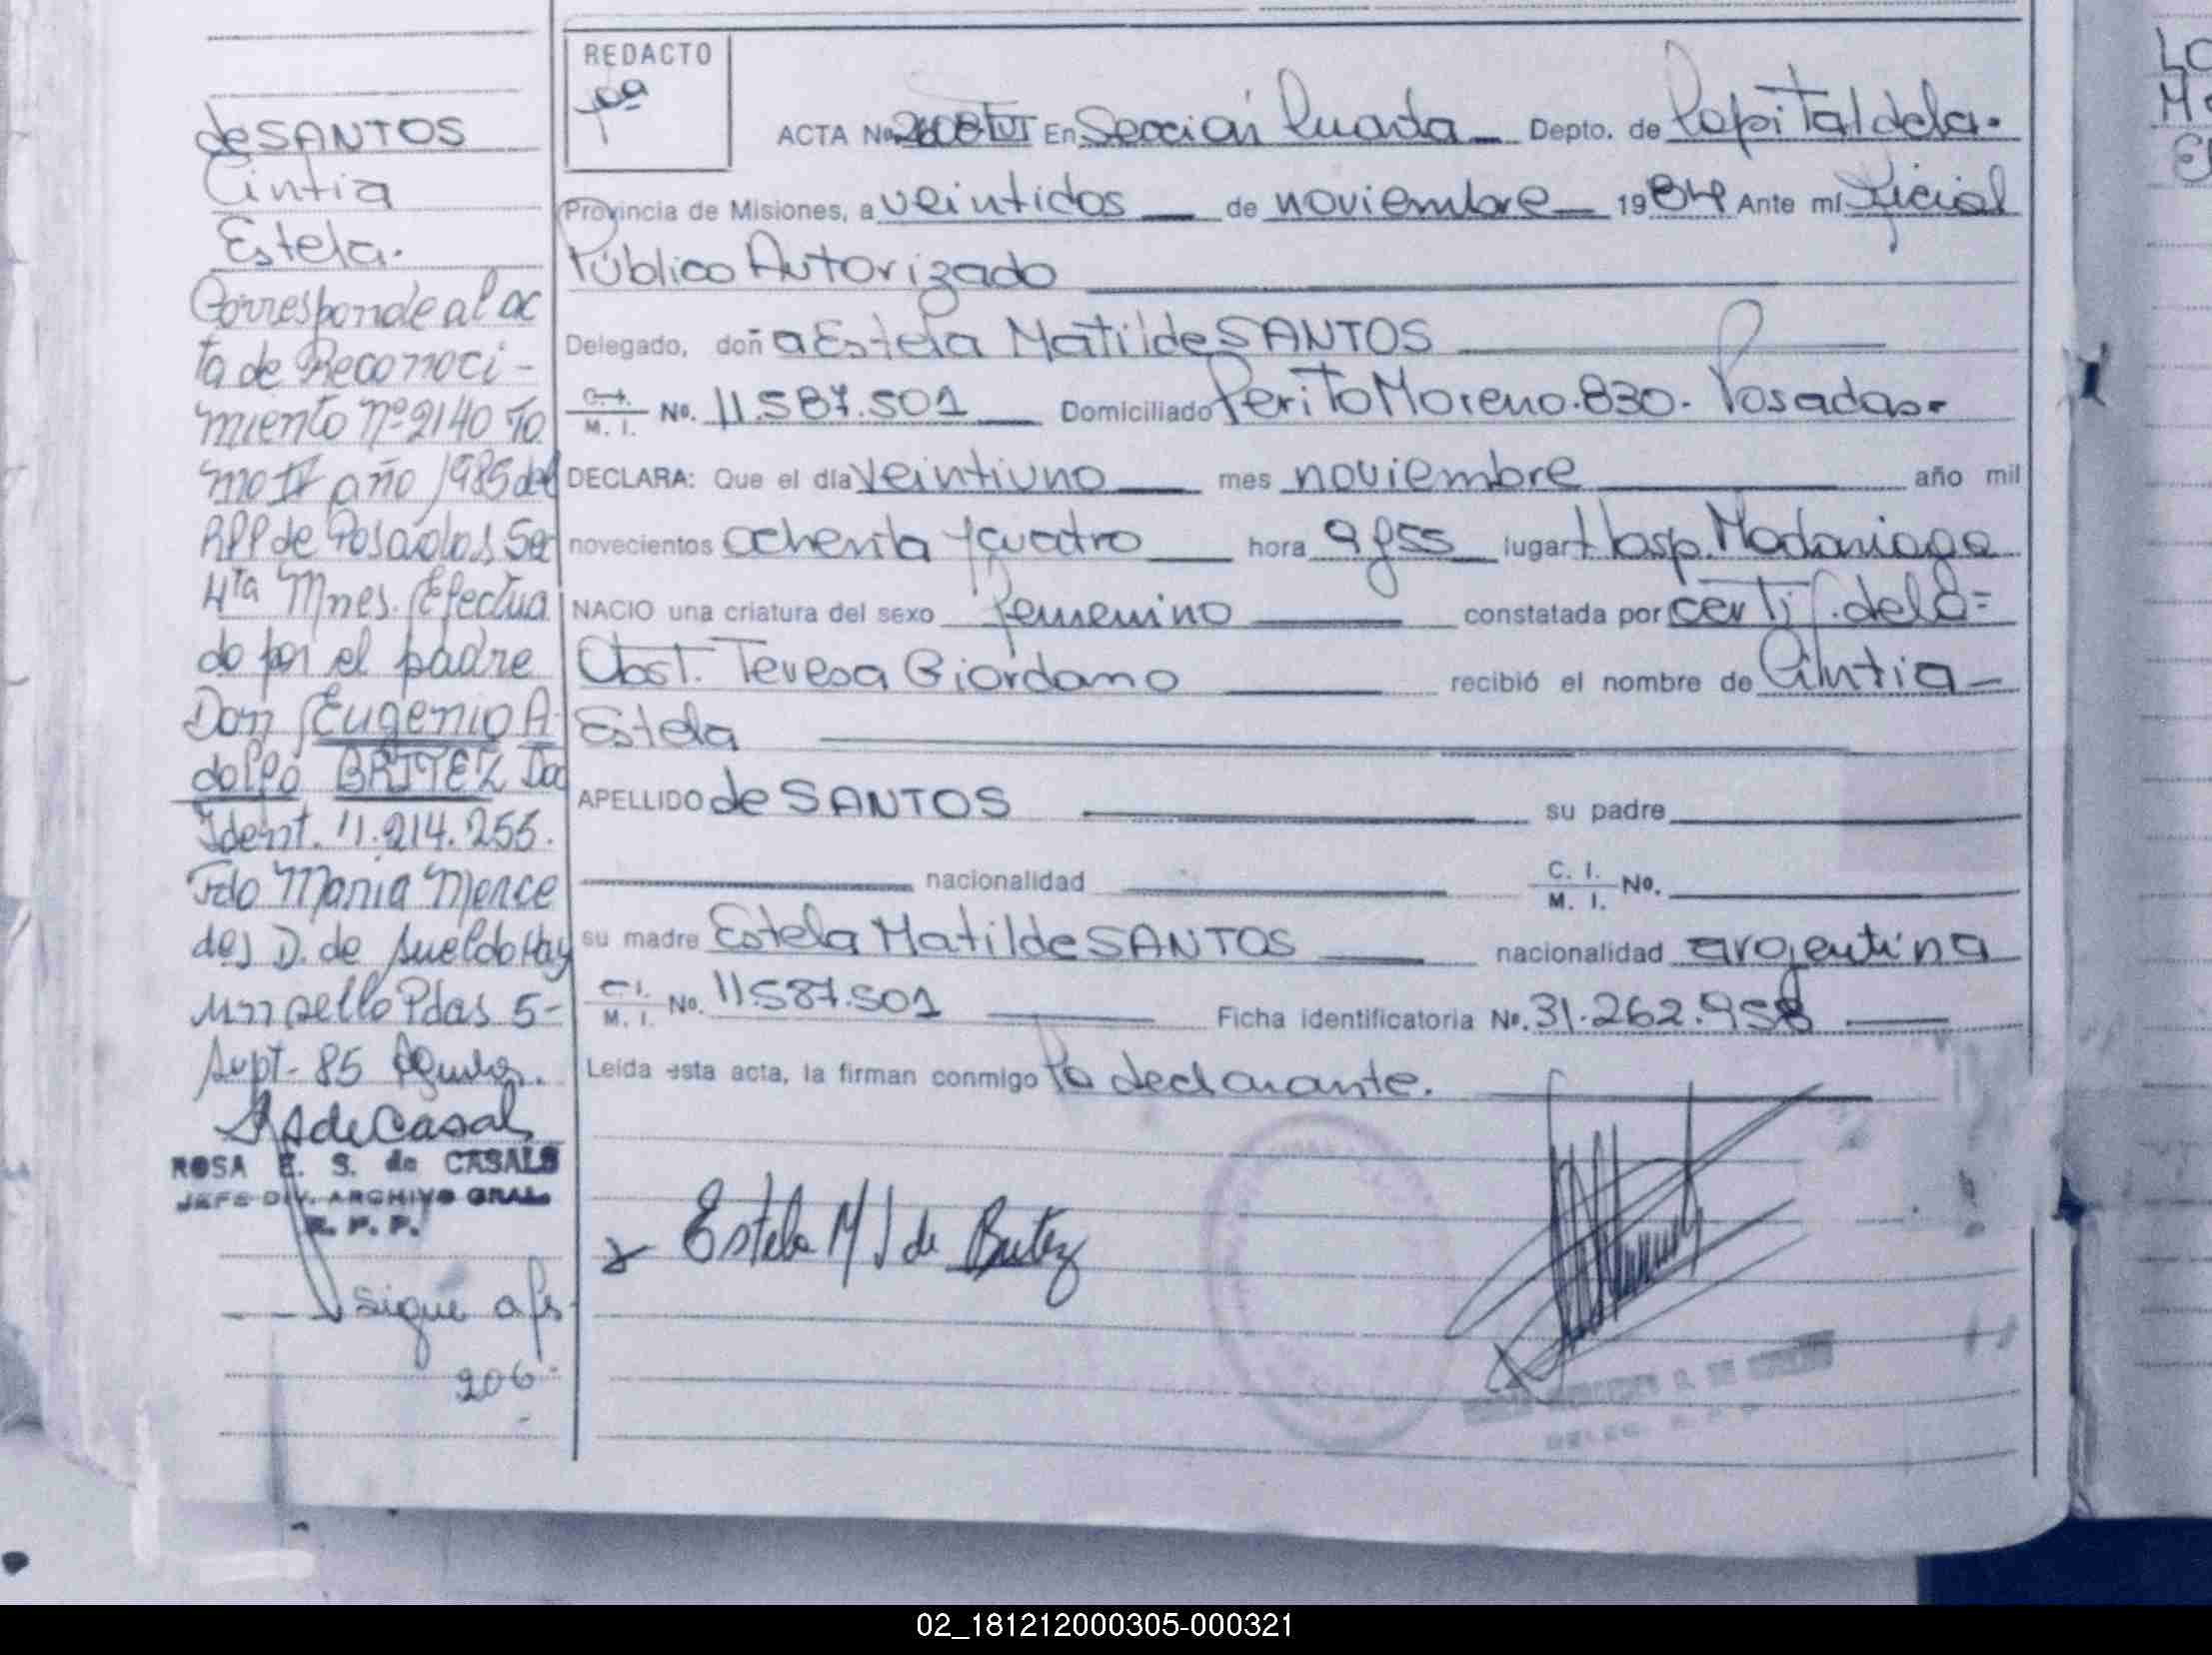 deSANTOS
Cintia
Estela.
Corresponde al ac
ta de Reconoci-
miento nº 2140 To
mo II año 1985 del
RPP de Posadas Sec
4ta Mnes. Efectua
do por el padre
Don Eugenio A
dolfo BRITEZ Doc
Ident. 11.214.255.
Fdo Maria Merce
des D. de Sueldo Hay
un sello Pdas 5-
Sept- 85
ROSA E. S. de CASALS
JEFE DIV. ARCHIVO GRAL.
R. P. P.
sigue a fs
206
REDACTO
ACTA No. 2608 En Sección Cuarta Depto. de Capital de la.
Provincia de Misiones, a veintidos de noviembre 1984 Ante mí Oficial
Público Autorizado
Delegado, doña Estela Matilde SANTOS
C.I. M. I. No. 11.587.501 Domiciliado Perito Moreno.830- Posadas-
DECLARA: Que el día veintiuno mes noviembre año mil
novecientos ochenta y cuatro hora 9 y 55 lugar Hosp. Madariaga
NACIO una criatura del sexo femenino constatada por certif. de la=
Obst. Teresa Giordano recibió el nombre de Cintia-
Estela
APELLIDO de SANTOS su padre
nacionalidad C. I. M. I. No.
su madre Estela Matilde SANTOS nacionalidad argentina
C.I. M. I. No. 11.587.501 Ficha identificatoria No. 31.262.958
Leída esta acta, la firman conmigo la declarante.
Estela M S de Britez
02_181212000305-000321